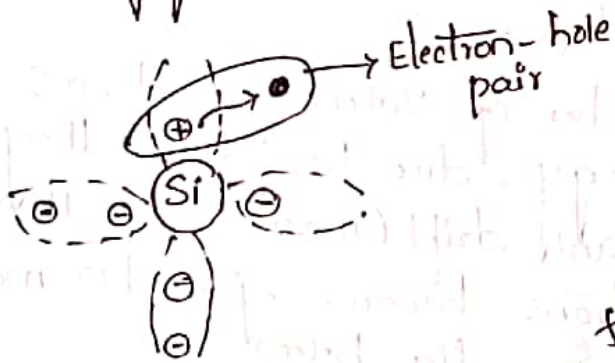 Electron-hole
pair
⊕
Si
⊖ ⊖ ⊖
⊖
⊖